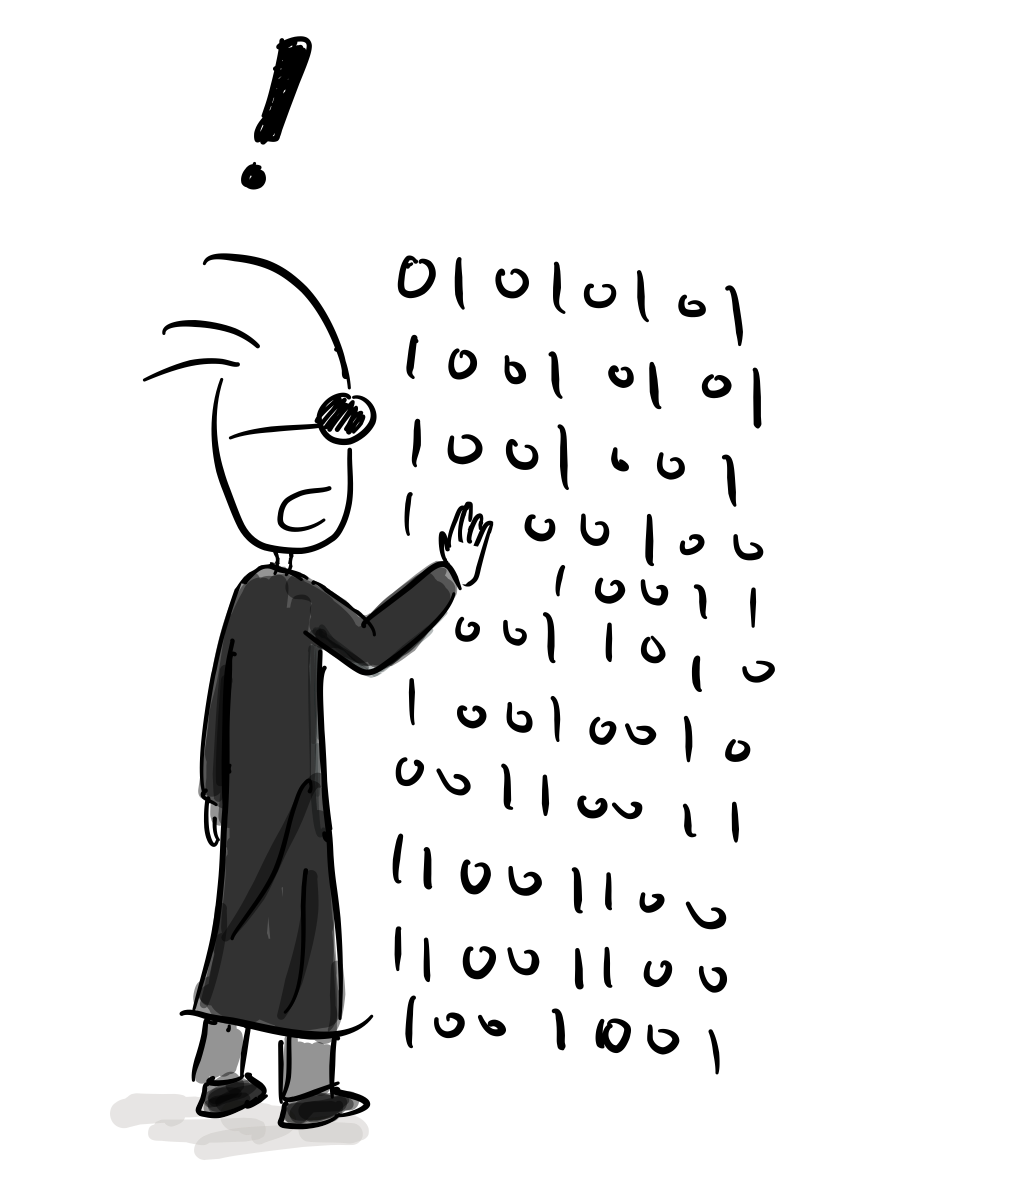 !
01010101
10010101
1001001
1 00100
10011
0011010
10010010
00110011
11001100
11001100
1001001